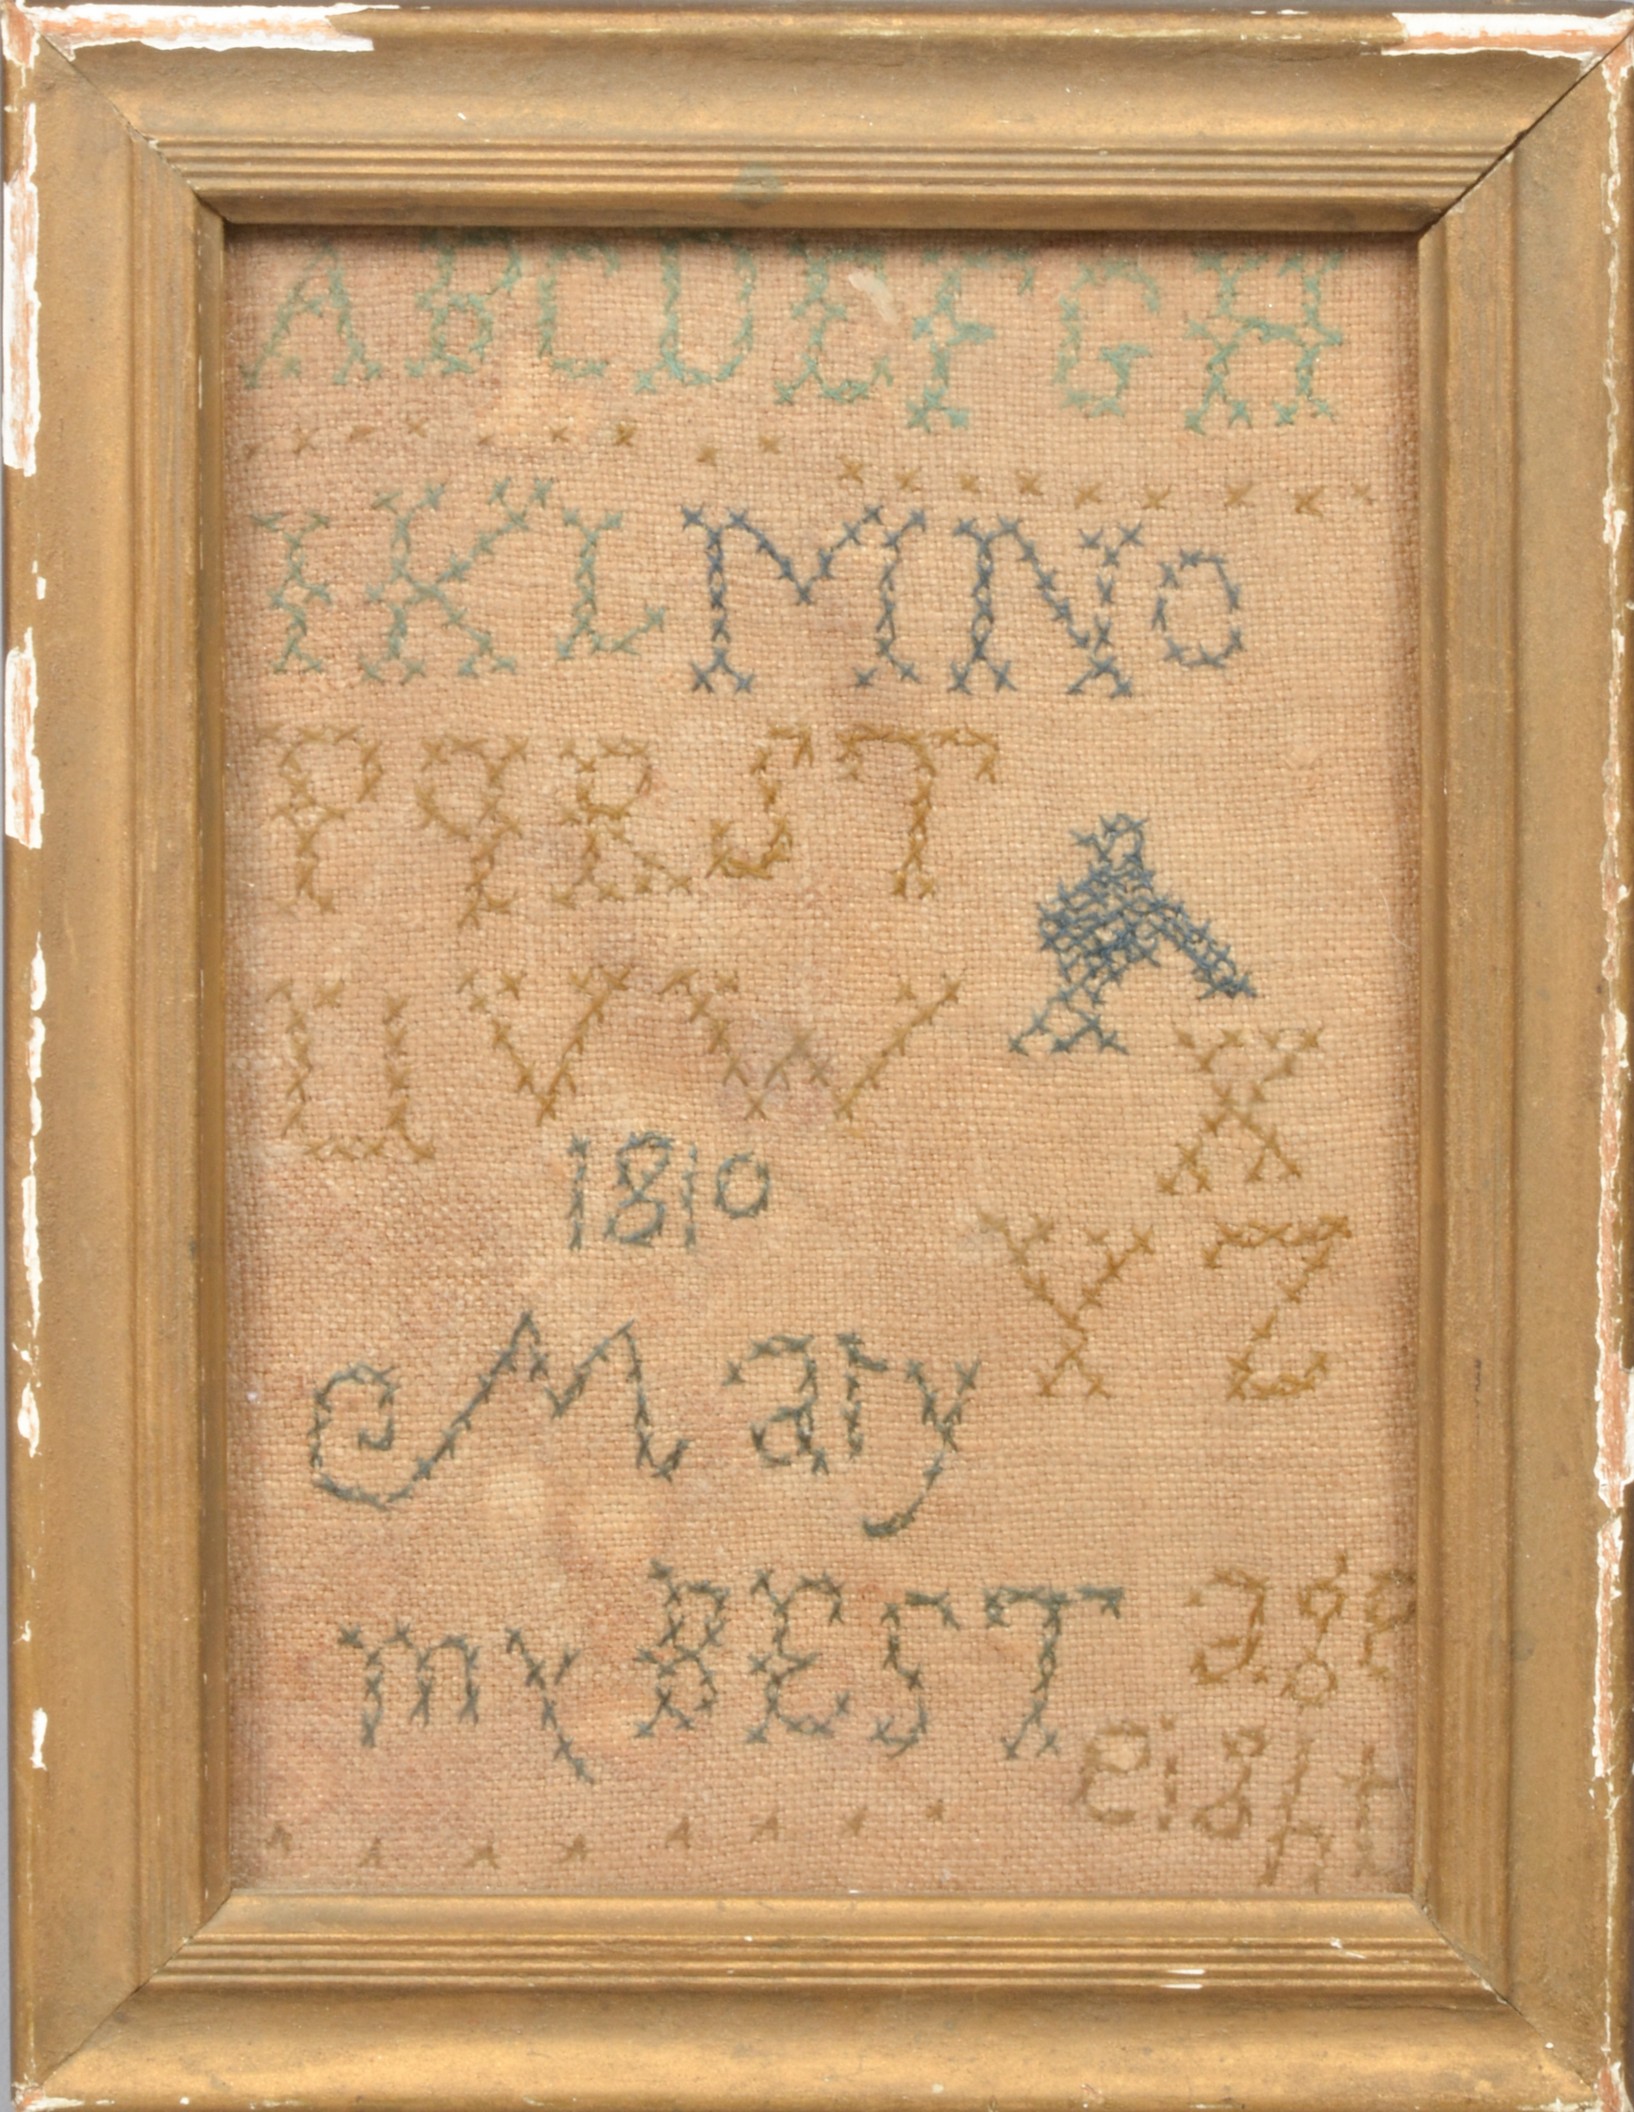 ABCDEFGH
IKLMNO
PQRST
UVW X
1810
YZ
Mary
my BEST age
eight